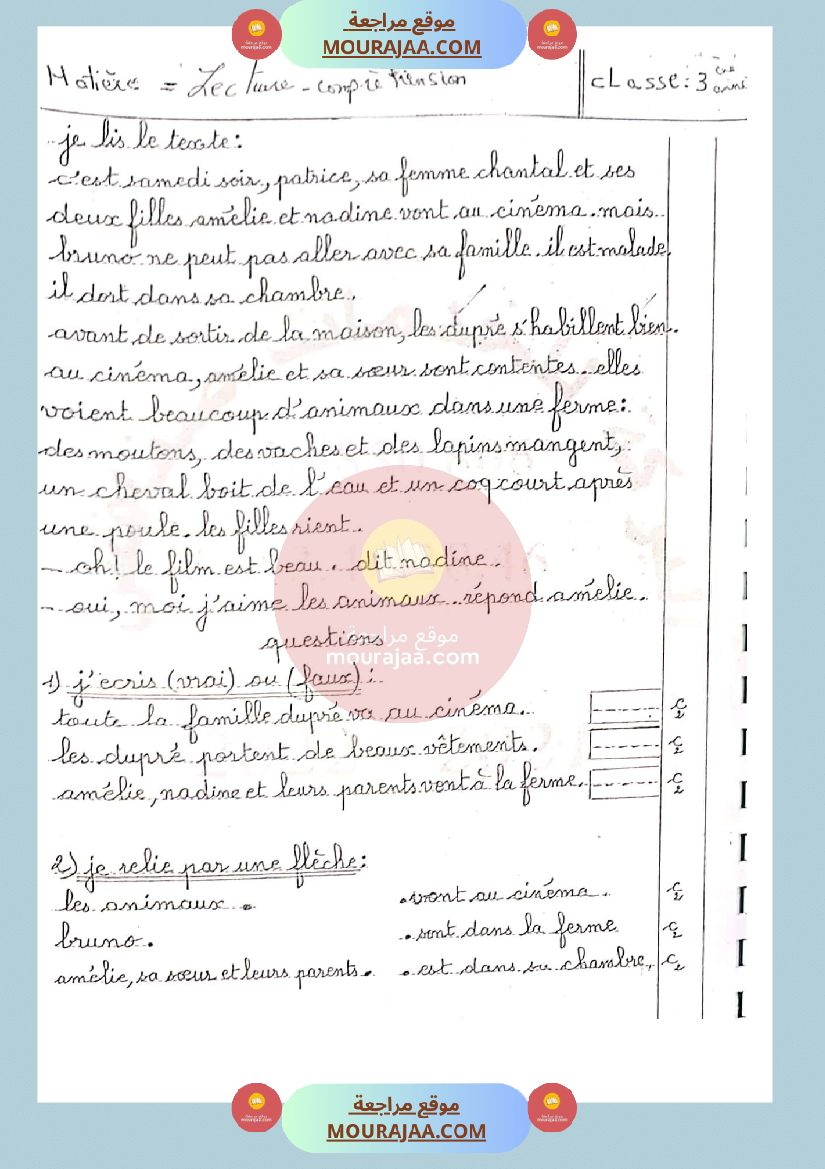 موقع مراجعة
MOURAJAA.COM
Matière = Lecture - compréhension
classe: 3 ème année
je lis le texte:
c'est samedi soir, patrice, sa femme chantal et ses
deux filles amélie et nadine vont au cinéma. mais
bruno ne peut pas aller avec sa famille. il est malade,
il dort dans sa chambre.
avant de sortir de la maison, les dupré s'habillent bien.
au cinéma, amélie et sa sœur sont contentes. elles
voient beaucoup d'animaux dans une ferme:
des moutons, des vaches et des lapins mangent,
un cheval boit de l'eau et un coq court après
une poule. les filles rient.
- oh! le film est beau. dit nadine.
- oui, moi j'aime les animaux. répond amélie.
questions
موقع مراجعة
mourajaa.com
1) j'ecris (vrai) ou (faux):
toute la famille dupré va au cinéma. C2
les dupré portent de beaux vêtements. C2
amélie, nadine et leurs parents vont à la ferme. C2
2) je relie par une flèche:
les animaux . . vont au cinéma. C2
bruno. . sont dans la ferme C2
amélie, sa sœur et leurs parents. . est dans sa chambre, C2
موقع مراجعة
MOURAJAA.COM